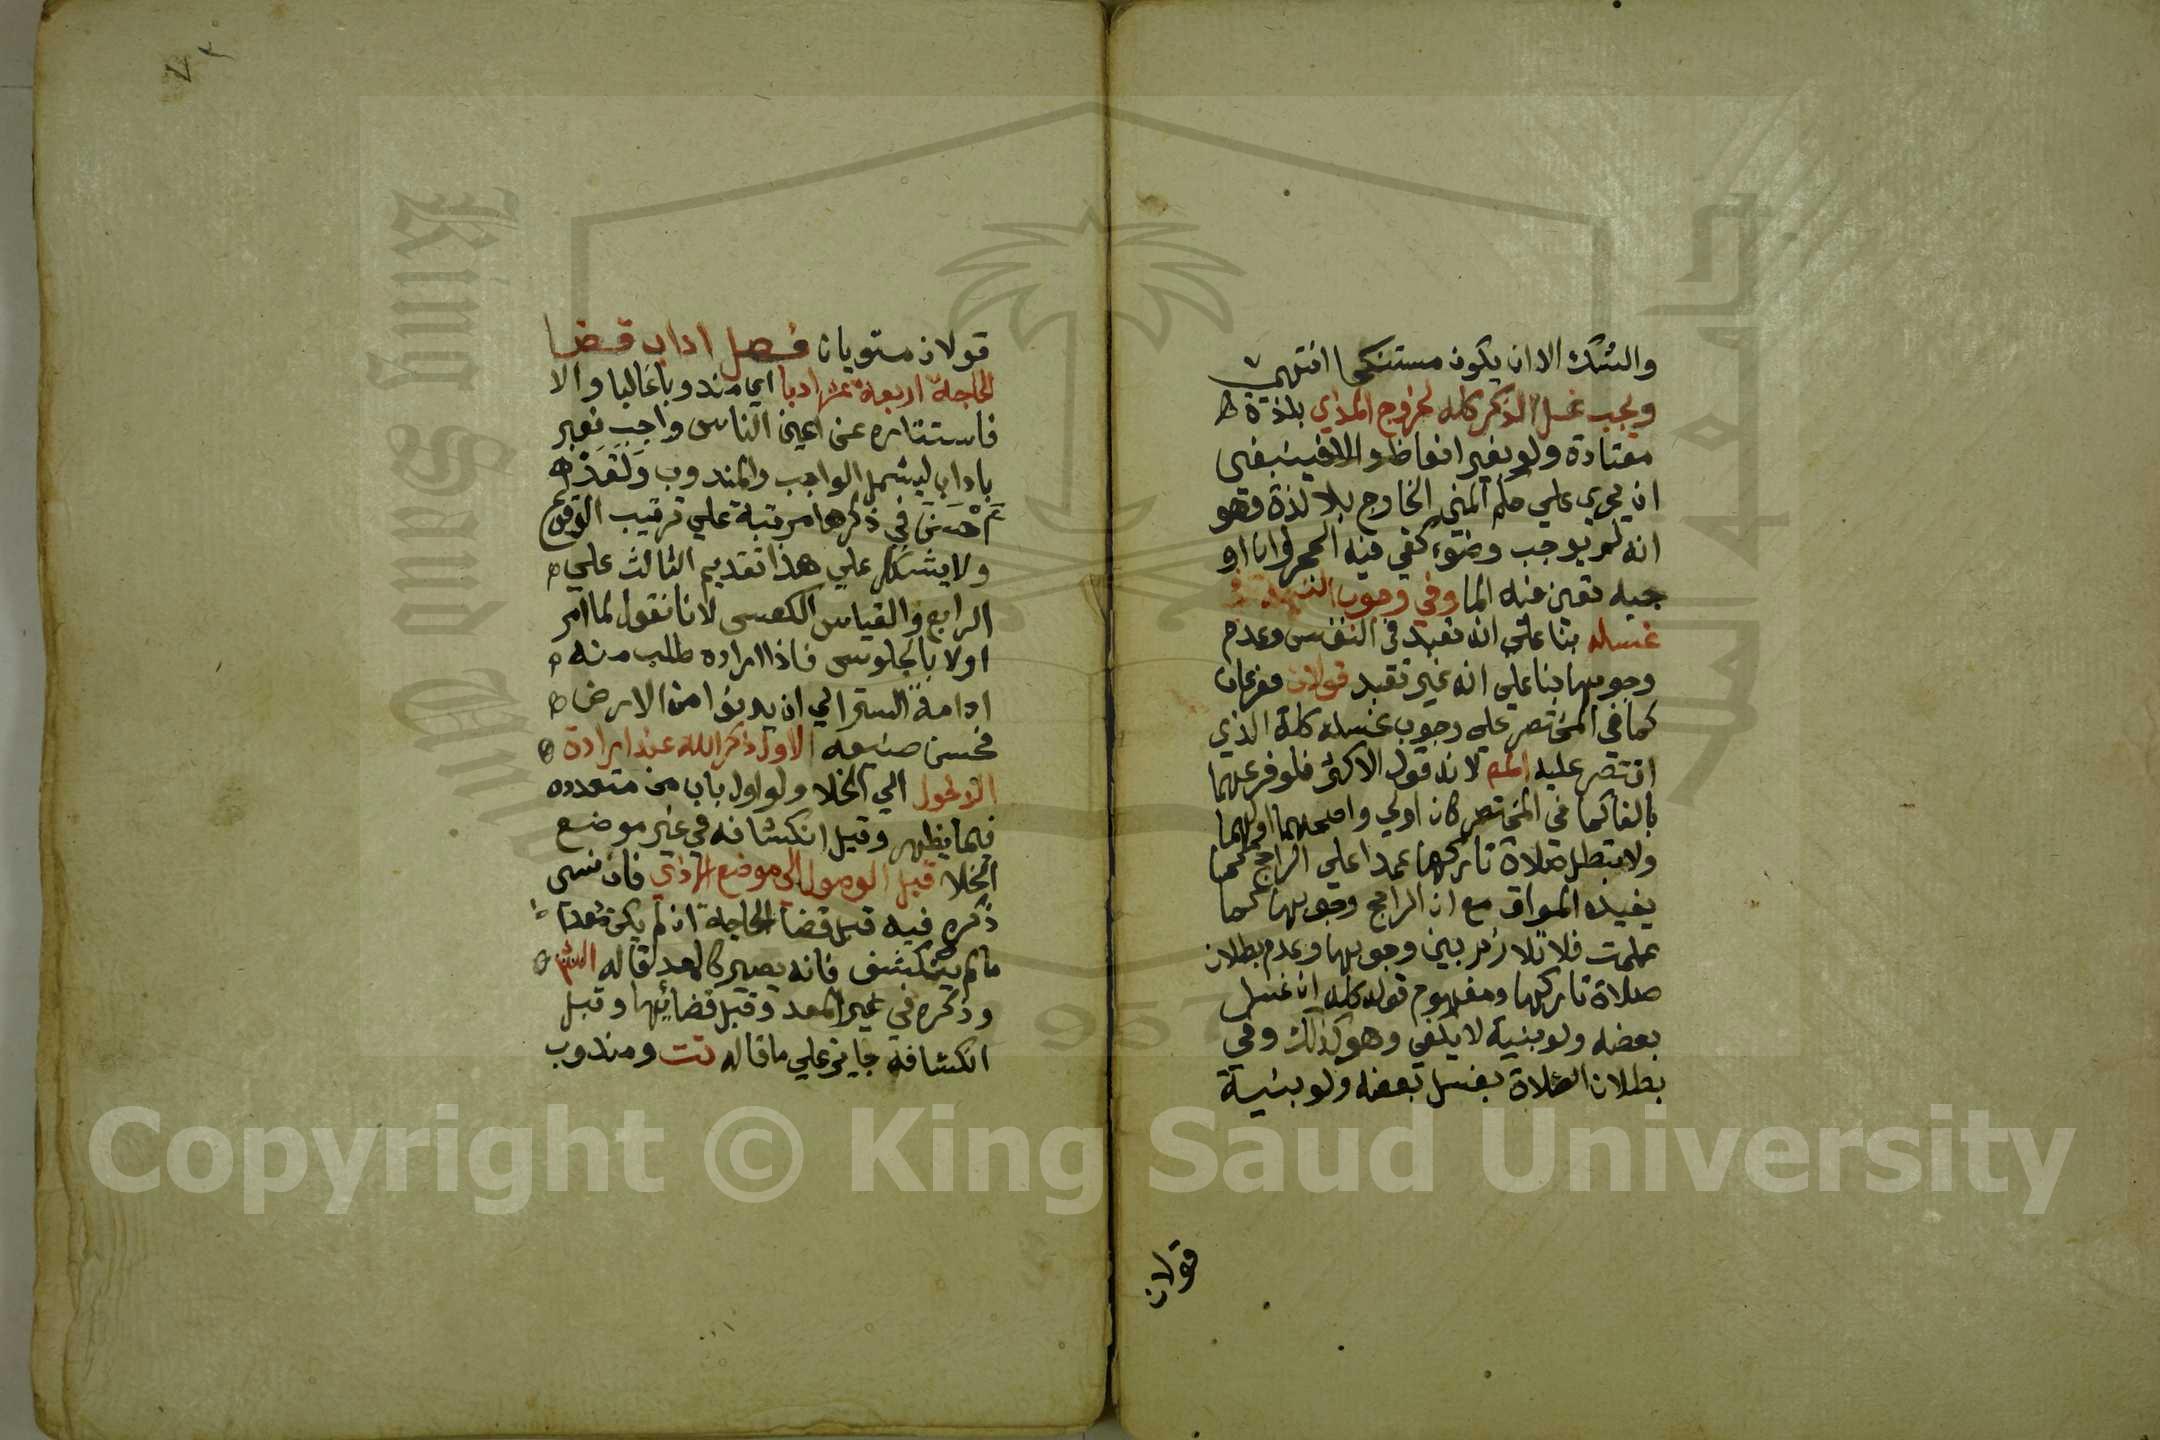 والشك الا ان يكون مستنكحا انتهي
ويجب غسل الذكر كله لخروج المذي بلذة
معتادة ولو بغير انعاظ والا فينبغي
ان يجري علي حكم المني الخارج بلا لذة وهو
انه لم يوجب وضوء كفي فيه الحجر وان او
جبه تعين فيه الما وفي وجوب النية في
غسله بنا علي انه تعبد في النفس وعدم
وجوبها بنا علي انه غير تعبد قولان مفرعان
كما في المختصر علي وجوب غسله كله الذي
اقتصر عليه المص لانه قول الاكثر فلو فرعهما
بالفا كما في المختصر كان اولي واصحهما اولهما
ولا تبطل صلاة تاركها عمدا علي الراجح كما
يفيده المواق مع ان الراجح وجوبها كما
علمت فلا تلازم بين وجوبها وعدم بطلان
صلاة تاركها ومفهوم قوله كله ان غسل
بعضه ولو بنية لا يكفي وهو كذلك وفي
بطلان الصلاة بغسل بعضه ولو بنية
قولان
٧٣
قولان مستويان فصل اداب قضا
الحاجة اربعة عشر ادبا اي مندوبا غالبا والا
فاستتاره عن اعين الناس واجب فعبر
باداب ليشمل الواجب والمندوب ولقد
احسن في ذكرها مرتبة علي ترتيب الوقوع
ولا يشكل علي هذا تقديم الثالث علي
الرابع والقياس العكس لانا نقول لما امر
اولا بالجلوس فاذا اراده طلب منه
ادامة الستر الي ان يدنوا من الارض
فحسن صنيعه الاول ذكر الله عند ارادة
الدخول الي الخلا ولو اول باب من متعدده
فيما يظهر وقبل انكشافه في غير موضع
الخلا قبل الوصول الي موضع الاذي فان نسي
ذكره فيه قبل قضا الحاجة ان لم يكن معدا
ما لم ينكشف فانه يصير كالمعد قاله الش
وذكره في غير المعد وقبل قضائها وقبل
انكشافه جايز علي ما قاله تت ومندوب